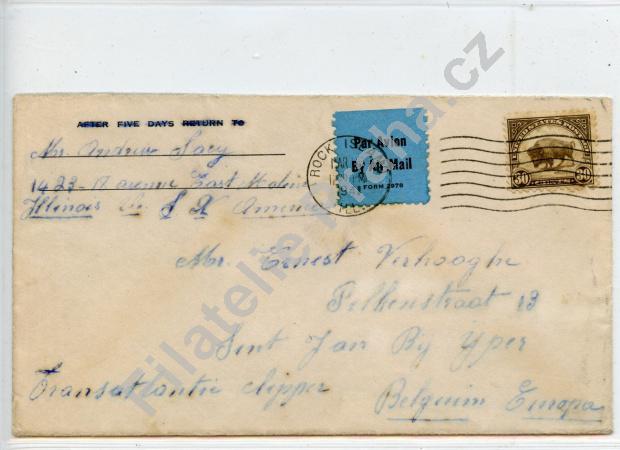 AFTER FIVE DAYS RETURN TO
Mr Andrew
1423 - 17 avenue East Moline
Illinois U S A America
Par Avion
By Air Mail
FORM 2978
ROCK ISL
ILL.
30 30
Mr. Ernest Verhooghe
Pelkenstraat 13
Sint Jan By Yper
Transatlantic clipper
Belguim Europa
Filatelie Praha.cz